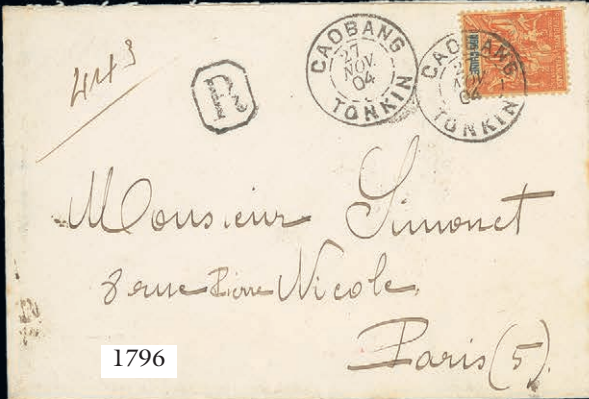 443
R
CAOBANG
27
NOV.
04
TONKIN
CAOBANG
2
NOV.
04
TONKIN
Monsieur Simonet
8 rue Pierre Nicole.
Paris (5).
1796